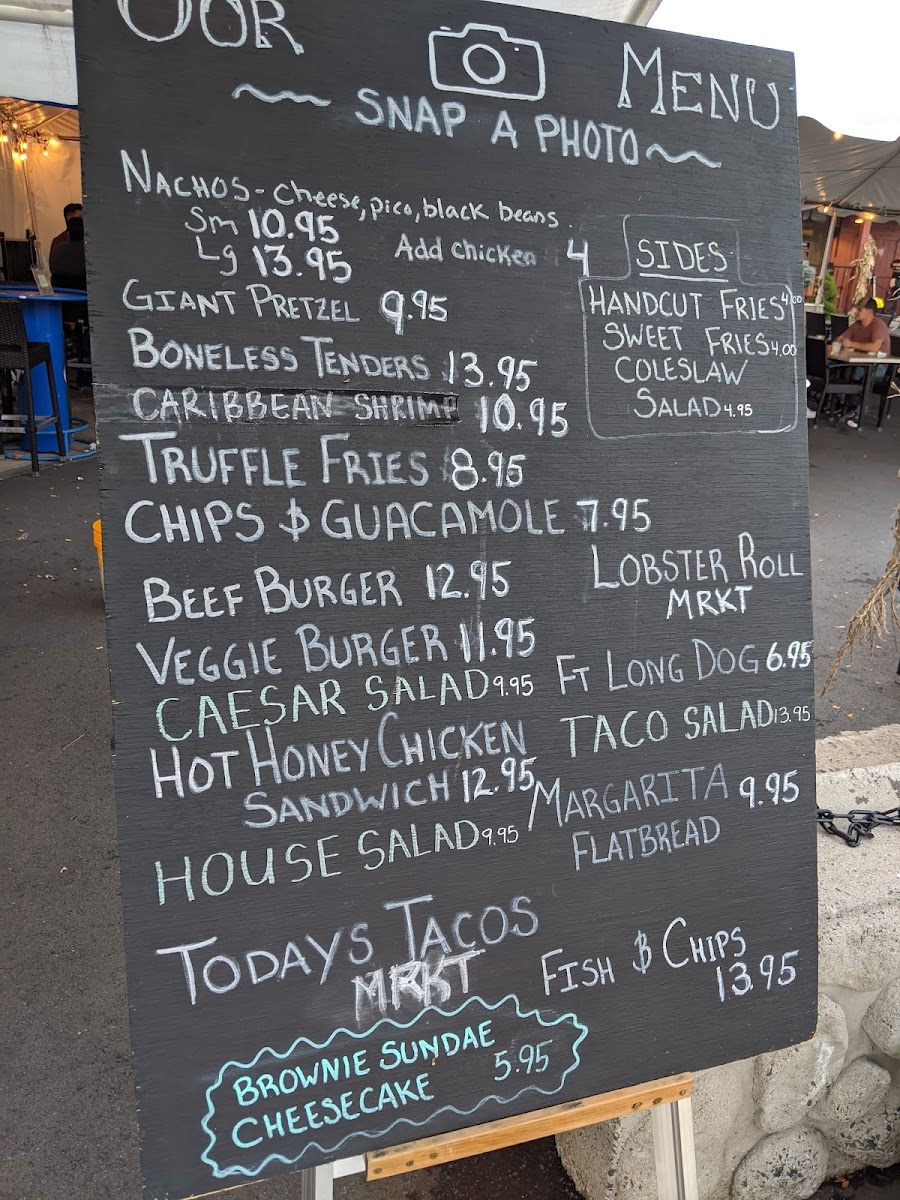 OUR MENU
SNAP A PHOTO
NACHOS - cheese, pico, black beans.
Sm 10.95
Lg 13.95
Add chicken 4
GIANT PRETZEL 9.95
BONELESS TENDERS 13.95
CARIBBEAN SHRIMP 10.95
TRUFFLE FRIES 8.95
CHIPS & GUACAMOLE 7.95
SIDES
HANDCUT FRIES 4.00
SWEET FRIES 4.00
COLESLAW
SALAD 4.95
BEEF BURGER 12.95
VEGGIE BURGER 11.95
CAESAR SALAD 9.95
HOT HONEY CHICKEN
SANDWICH 12.95
HOUSE SALAD 9.95
LOBSTER ROLL
MRKT
FT LONG DOG 6.95
TACO SALAD 13.95
MARGARITA 9.95
FLATBREAD
TODAYS TACOS
MRKT
FISH & CHIPS
13.95
BROWNIE SUNDAE
CHEESECAKE 5.95